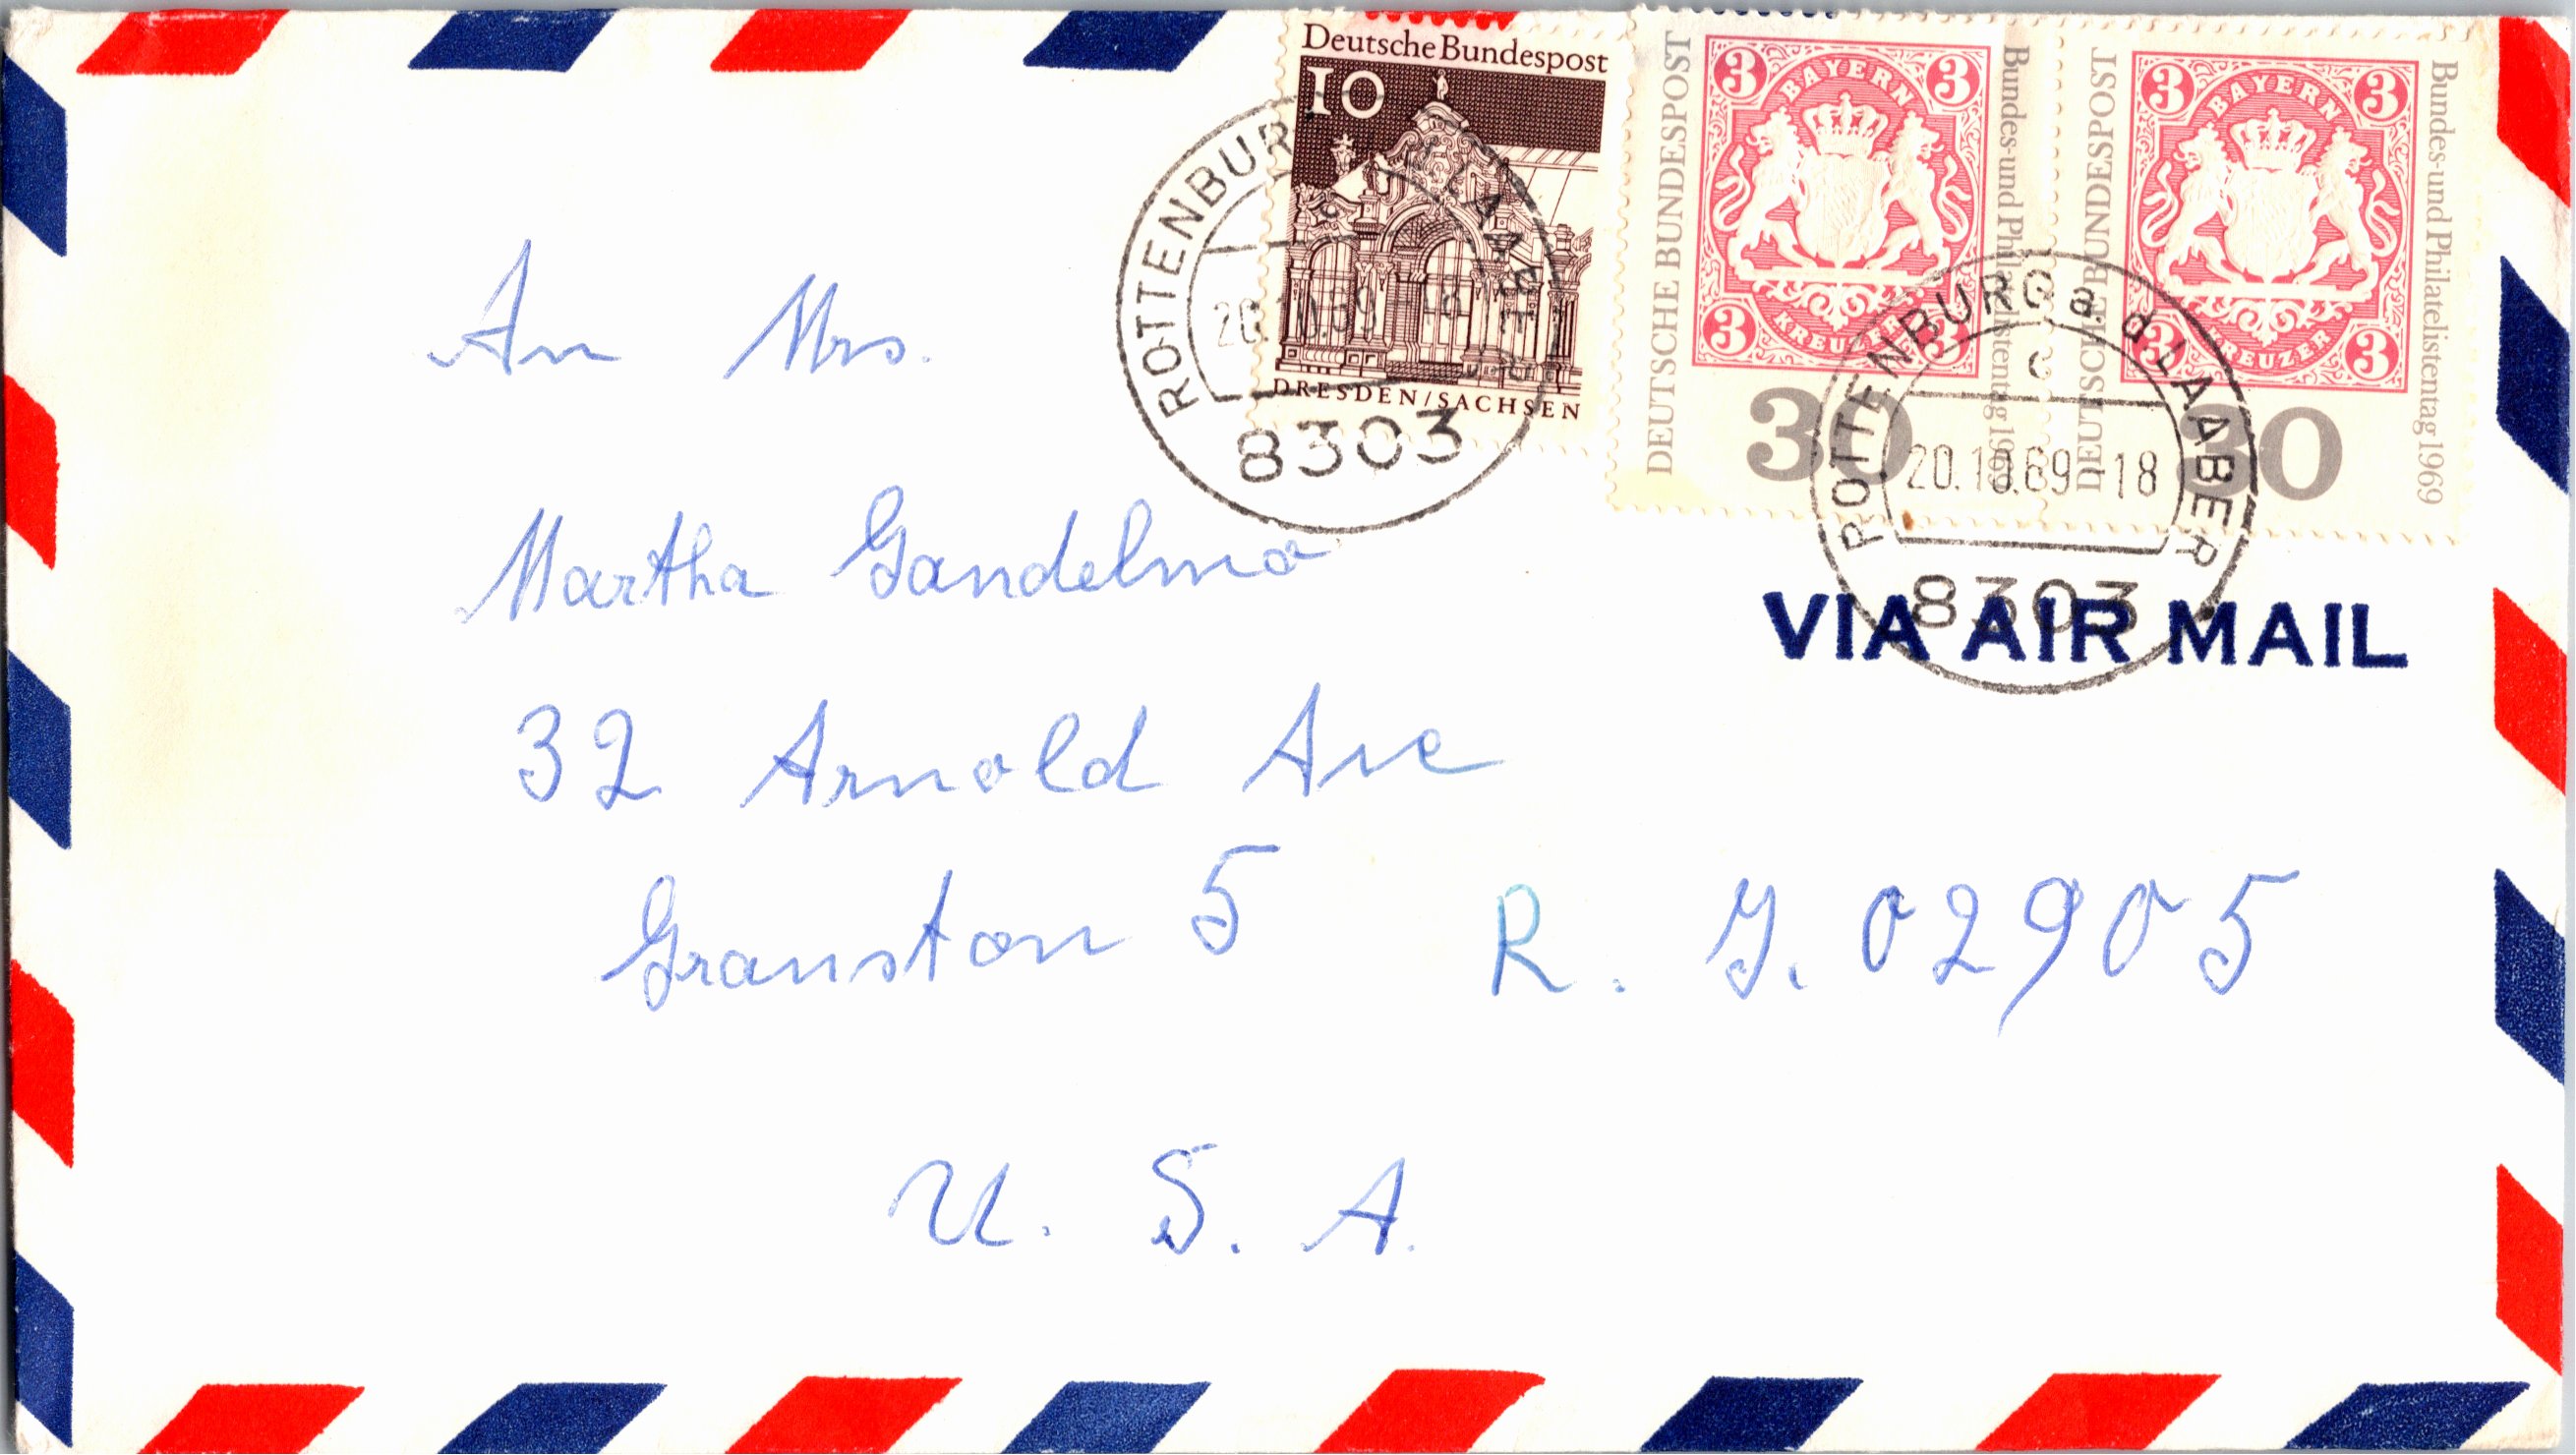 Deutsche Bundespost
10
DRESDEN/SACHSEN
DEUTSCHE BUNDESPOST
3 BAYERN 3
3 KREUZER 3
30
Bundes- und Philatelistentag 1969
DEUTSCHE BUNDESPOST
3 BAYERN 3
3 KREUZER 3
30
Bundes- und Philatelistentag 1969
ROTTENBURG a. d. LAABER
20.10.69
8303
ROTTENBURG a. d. LAABER
c
20.10.69-18
8303
VIA AIR MAIL
An Mrs.
Martha Gandelma
32 Arnold Ave
Granston 5 R. I. 02905
U. S. A.